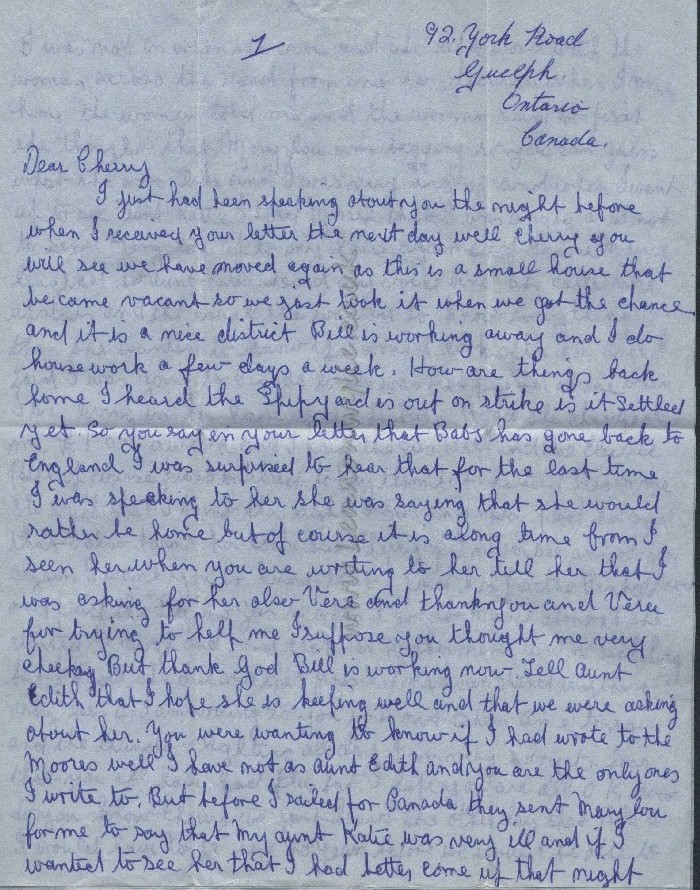 1
92. York Road
Guelph
Ontario
Canada.
Dear Cherry
I just had been speaking about you the night before
when I received your letter the next day well Cherry you
will see we have moved again as this is a small house that
became vacant so we just took it when we got the chance
and it is a nice district Bill is working away and I do
housework a few days a week. How are things back
home I heard the Shipyard is out on strike is it settled
yet. So you say in your letter that Babs has gone back to
England I was surprised to hear that for the last time
I was speaking to her she was saying that she would
rather be home but of course it is along time from I
seen her. when you are writing to her tell her that I
was asking for her also Vera and thankyou and Vera
for trying to help me I suppose you thought me very
cheeky But thank God Bill is working now. Tell Aunt
Edith that I hope she is keeping well and that we were asking
about her. You were wanting to know if I had wrote to the
Moores well I have not as aunt Edith and you are the only ones
I write to. But before I sailed for Canada they sent Mary Lou
for me to say that my aunt Katie was very ill and if I
wanted to see her that I had better come up that night